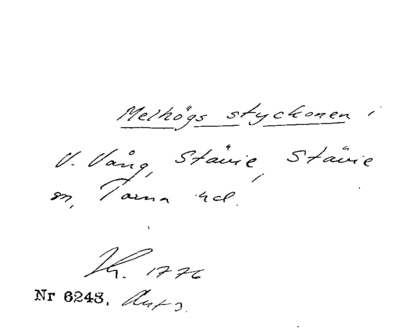 Melhögs styckonen i
V. Vång, Stävie, Stävie
sn, Torna hd.
1776
Nr 6243.